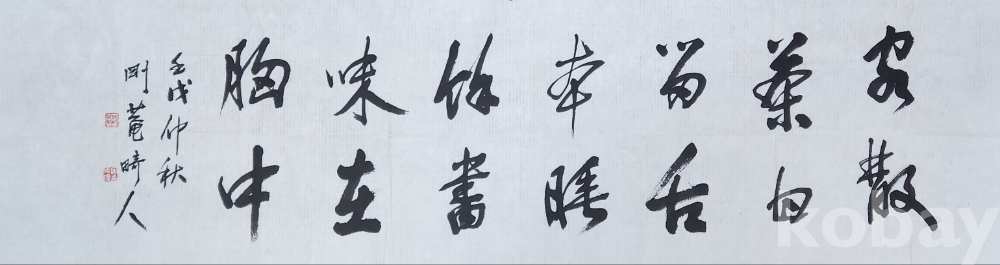 客散
茶甘
留舌
本睡
餘書
味在
胸中
壬戌仲秋
剛菴畸人
kobay